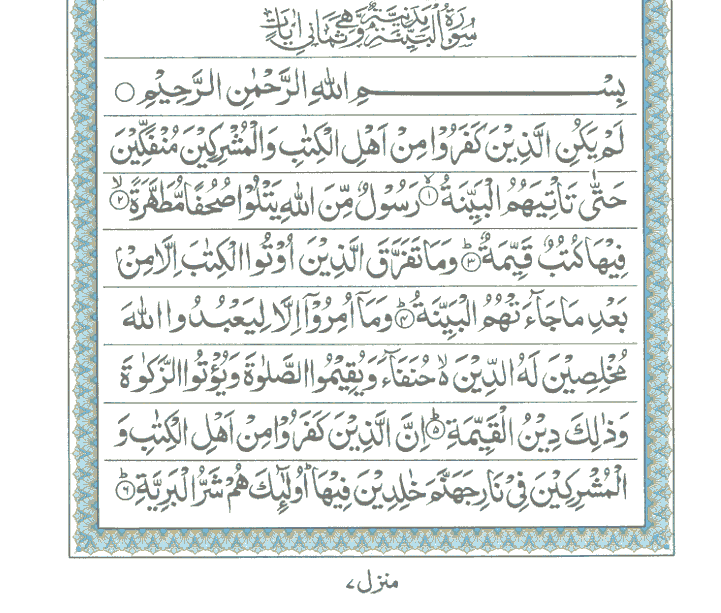 سُوْرَةُ الْبَيِّنَةِ مَدَنِيَّةٌ وَّهِيَ ثَمَانِيْ اٰيَاتٍ
بِسْمِ اللّٰهِ الرَّحْمٰنِ الرَّحِيْمِ ○
لَمْ يَكُنِ الَّذِيْنَ كَفَرُوْا مِنْ اَهْلِ الْكِتٰبِ وَالْمُشْرِكِيْنَ مُنْفَكِّيْنَ
حَتّٰى تَاْتِيَهُمُ الْبَيِّنَةُ ۙ﴿۱﴾ رَسُوْلٌ مِّنَ اللّٰهِ يَتْلُوْا صُحُفًا مُّطَهَّرَةً ۙ﴿۲﴾
فِيْهَا كُتُبٌ قَيِّمَةٌ ؕ﴿۳﴾ وَمَا تَفَرَّقَ الَّذِيْنَ اُوْتُوا الْكِتٰبَ اِلَّا مِنْۢ
بَعْدِ مَا جَآءَتْهُمُ الْبَيِّنَةُ ؕ﴿۴﴾ وَمَاۤ اُمِرُوْۤا اِلَّا لِيَعْبُدُوا اللّٰهَ
مُخْلِصِيْنَ لَهُ الدِّيْنَ ۙ۬ حُنَفَآءَ وَيُقِيْمُوا الصَّلٰوةَ وَيُؤْتُوا الزَّكٰوةَ
وَذٰلِكَ دِيْنُ الْقَيِّمَةِ ؕ﴿۵﴾ اِنَّ الَّذِيْنَ كَفَرُوْا مِنْ اَهْلِ الْكِتٰبِ وَ
الْمُشْرِكِيْنَ فِيْ نَارِ جَهَنَّمَ خٰلِدِيْنَ فِيْهَا ؕ اُولٰٓئِكَ هُمْ شَرُّ الْبَرِيَّةِ ؕ﴿۶﴾
منزل ۷